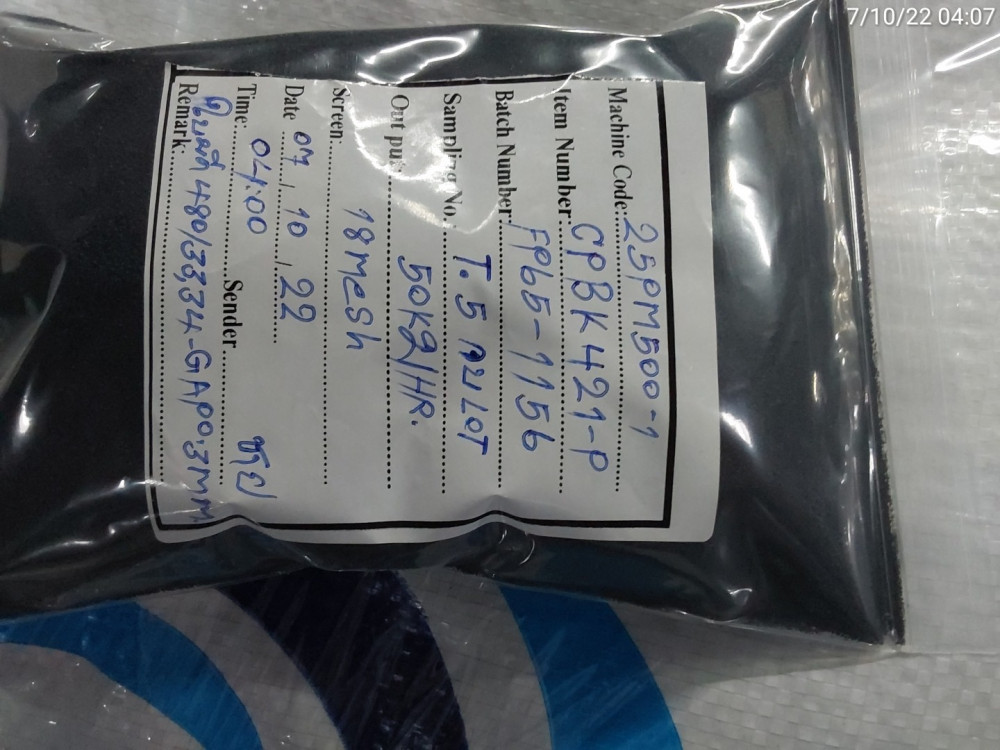 7/10/22 04:07
Machine Code: 25PM500-1
Item Number: CPBK421-P
Batch Number: FP65-1156
Sampling No. T.5 กบ LOT
Out put 50Kg/HR.
Screen: 18mesh
Date 07 / 10 / 22
Time: 04:00 Sender
Remark: ใบมีด 480/33,34-GAP0.3MM